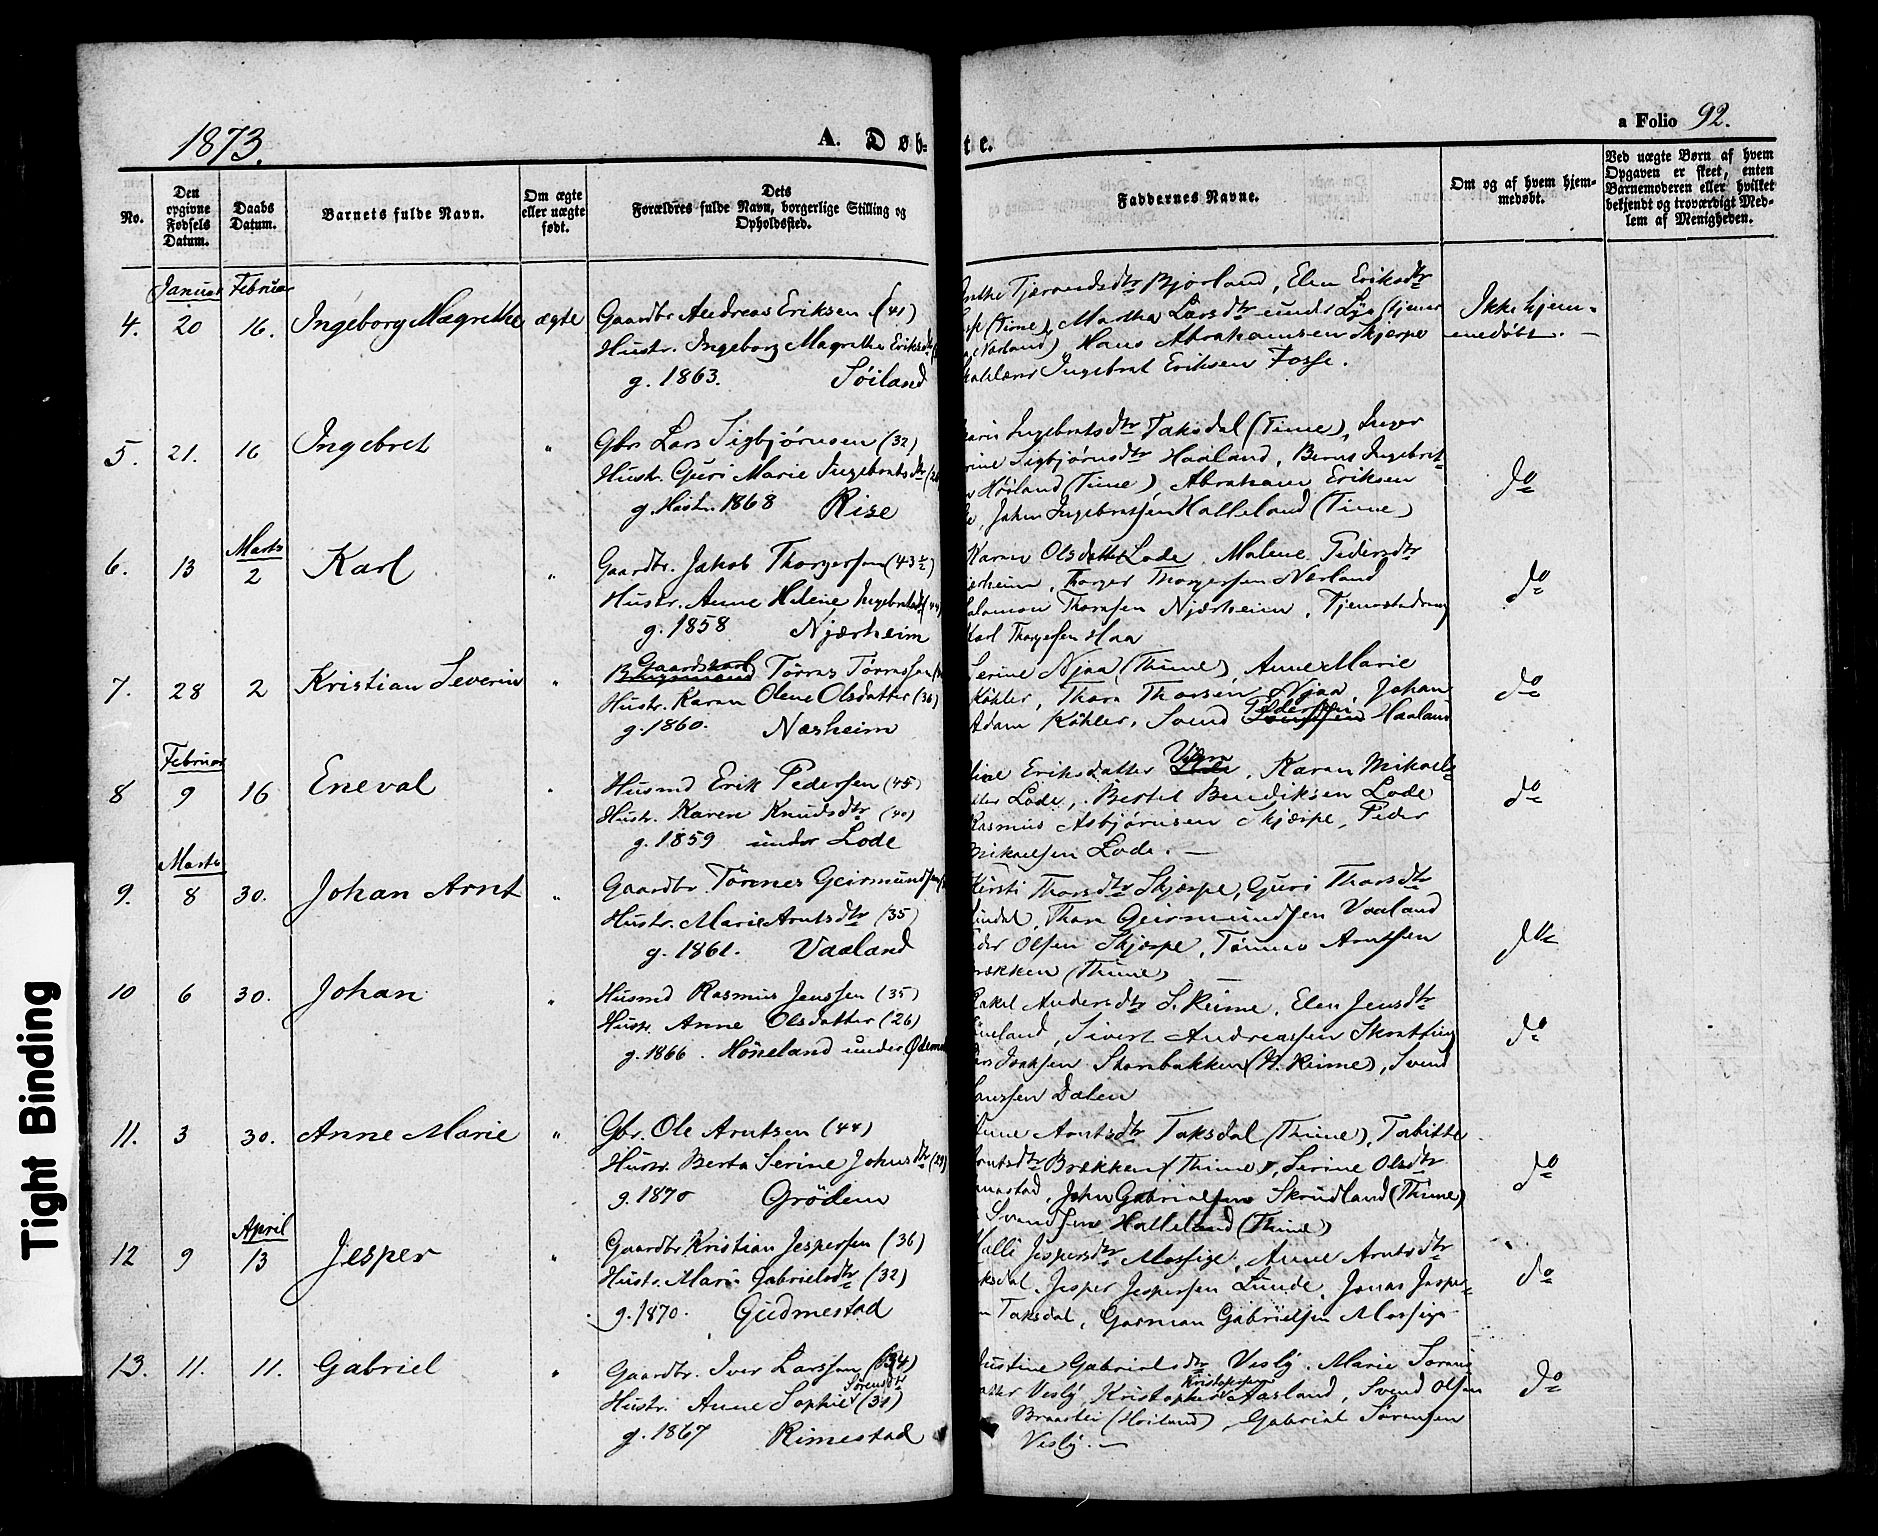 1873.
A. Døb-
te.
a Folio 92.
No.
Den opgivne Fødsels Datum.
Daabs Datum.
Barnets fulde Navn.
Om ægte eller uægte født.
Dets Forældres fulde Navn, borgerlige Stilling og Opholdssted.
Faddernes Navne.
Om og af hvem hjem-
medøbt.
Ved uægte Børn af hvem
Opgaven er skeet, enten
Barnemoderen eller hvilket
bekjendt og troværdigt Med-
lem af Menigheden.
Januar Februar
4. 20 16. Ingeborg Magrethe ægte
Gaardbr Andreas Eriksen (41)
Hustr. Ingeborg Magrethe Eriksd
g. 1863. Söiland
Tjærandsdtr Bjorland, Elen Eriksdtr
(Time), Martha Larsdtr under Lye (tjener
Nærland) Hans Abrahamsen Skjerpe
Ingebret Eriksen Fosse.
Ikke hjem-
medøbt. —
5. 21. 16 Ingebret "
Gbr. Lars Sigbjörnsen (32)
Hustr. Guri Marie Ingebretsdtr
g. Høst. 1868 Rise
Ingebretsdtr Taksdal (Time), Inger
Sigbjörnsdtr Haaland, Bernt Ingebret-
Höiland (Time) Abraham Eriksen
John Ingebretsen Halleland (Time)
do
6. 13 Marts 2 Karl "
Gaardbr. Jakob Thorgersen (43½)
Hustr. Anne Helene Ingebretsd (44)
g. 1858 Njærheim
Karen Olsdatter Lode Malene Pedersdtr
Thorger Thorgersen Nærland
Salomon Thorsen Njærheim, Tjenestedreng
Karl Thorgersen Haa
do
7. 28 2 Kristian Severin "
Gaardskarl Tørres Tørressen
Hustr. Karen Olene Olsdatter (36)
g. 1860. Næsheim
Serine Njaa (Thime), Anne Marie
Köhler, Thore Thorsen Njaa, Johan
Adam Köhler, Svend Pedersen Haaland
do
Februar
8 9 16 Eneval "
Husmd Erik Pedersen (45)
Hustr. Karen Knudsdtr (40)
g. 1859 under Lode
Eriksdatter, Karen Mikaels-
Lode, Bertel Bendiksen Lode
Rasmus Asbjörnsen Skjærpe, Peder
Mikaelsen Lode. —
do
Marts
9. 8 30. Johan Arnt "
Gaardbr. Törres Geirmundsen
Hustr. Marie Arntsdtr (35)
g. 1861. Vaaland
Kirsti Thorsdtr Skjærpe, Guri Thorsdtr
Thore Geirmundsen Vaaland
Olsen Skjærpe, Tönnes Arntsen
Brækken (Thime) —
do
10 6 30. Johan "
Husmd Rasmus Jenssen (35)
Hustr. Anne Olsdatter (26)
g. 1866. Höneland under
Rakel Andersdtr S. Reime, Elen Jensdtr
Sivert Andreassen
Stenbakken (N. Reime), Svend
Dalen
do
11. 3 30. Anne Marie "
Gbr. Ole Arntsen (44)
Hustr. Berta Serine Johnsdtr
g. 1870 Grödem
Arntsdtr Taksdal (Thime), Tabitte
Arntsdtr Brækken (Thime), Serine Olsdtr
John Gabrielsen Skrudland (Thime)
Svendsen Halleland (Thime)
do
12 9 April 13 Jesper "
Gaardbr Kristian Jespersen (36)
Hustr. Mari Gabrielsdtr (32)
g. 1870. Gudmestad
Malli Jespersdtr Mossige, Anne Arntsdtr
Jesper Jespersen Lunde, Jonas Jesper-
Taksdal, Gabrielsen Mossige
do
13. 11. 11. Gabriel "
Gaardbr. Iver Larssen (34)
Hustr. Anne Sophie Sørensdtr (31)
g. 1867 Rimestad
Justine Gabrielsdtr Visty. Marie Sørens
Kristopher Kristophersen Aasland, Svend Olsen
Braastei (Höiland), Gabriel Sørensen
Tight Binding